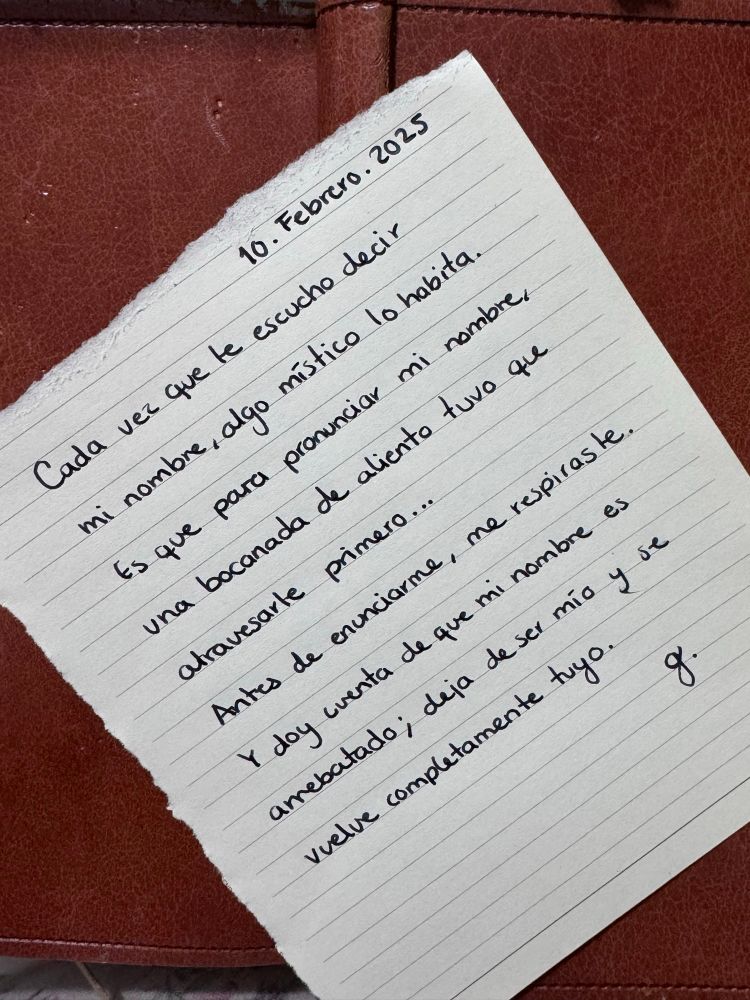 10. Febrero. 2025
Cada vez que te escucho decir
mi nombre, algo místico lo habita.
Es que para pronunciar mi nombre,
una bocanada de aliento tuvo que
atravesarte primero...
Antes de enunciarme, me respiraste.
Y doy cuenta de que mi nombre es
arrebatado; deja de ser mío y se
vuelve completamente tuyo.
g.